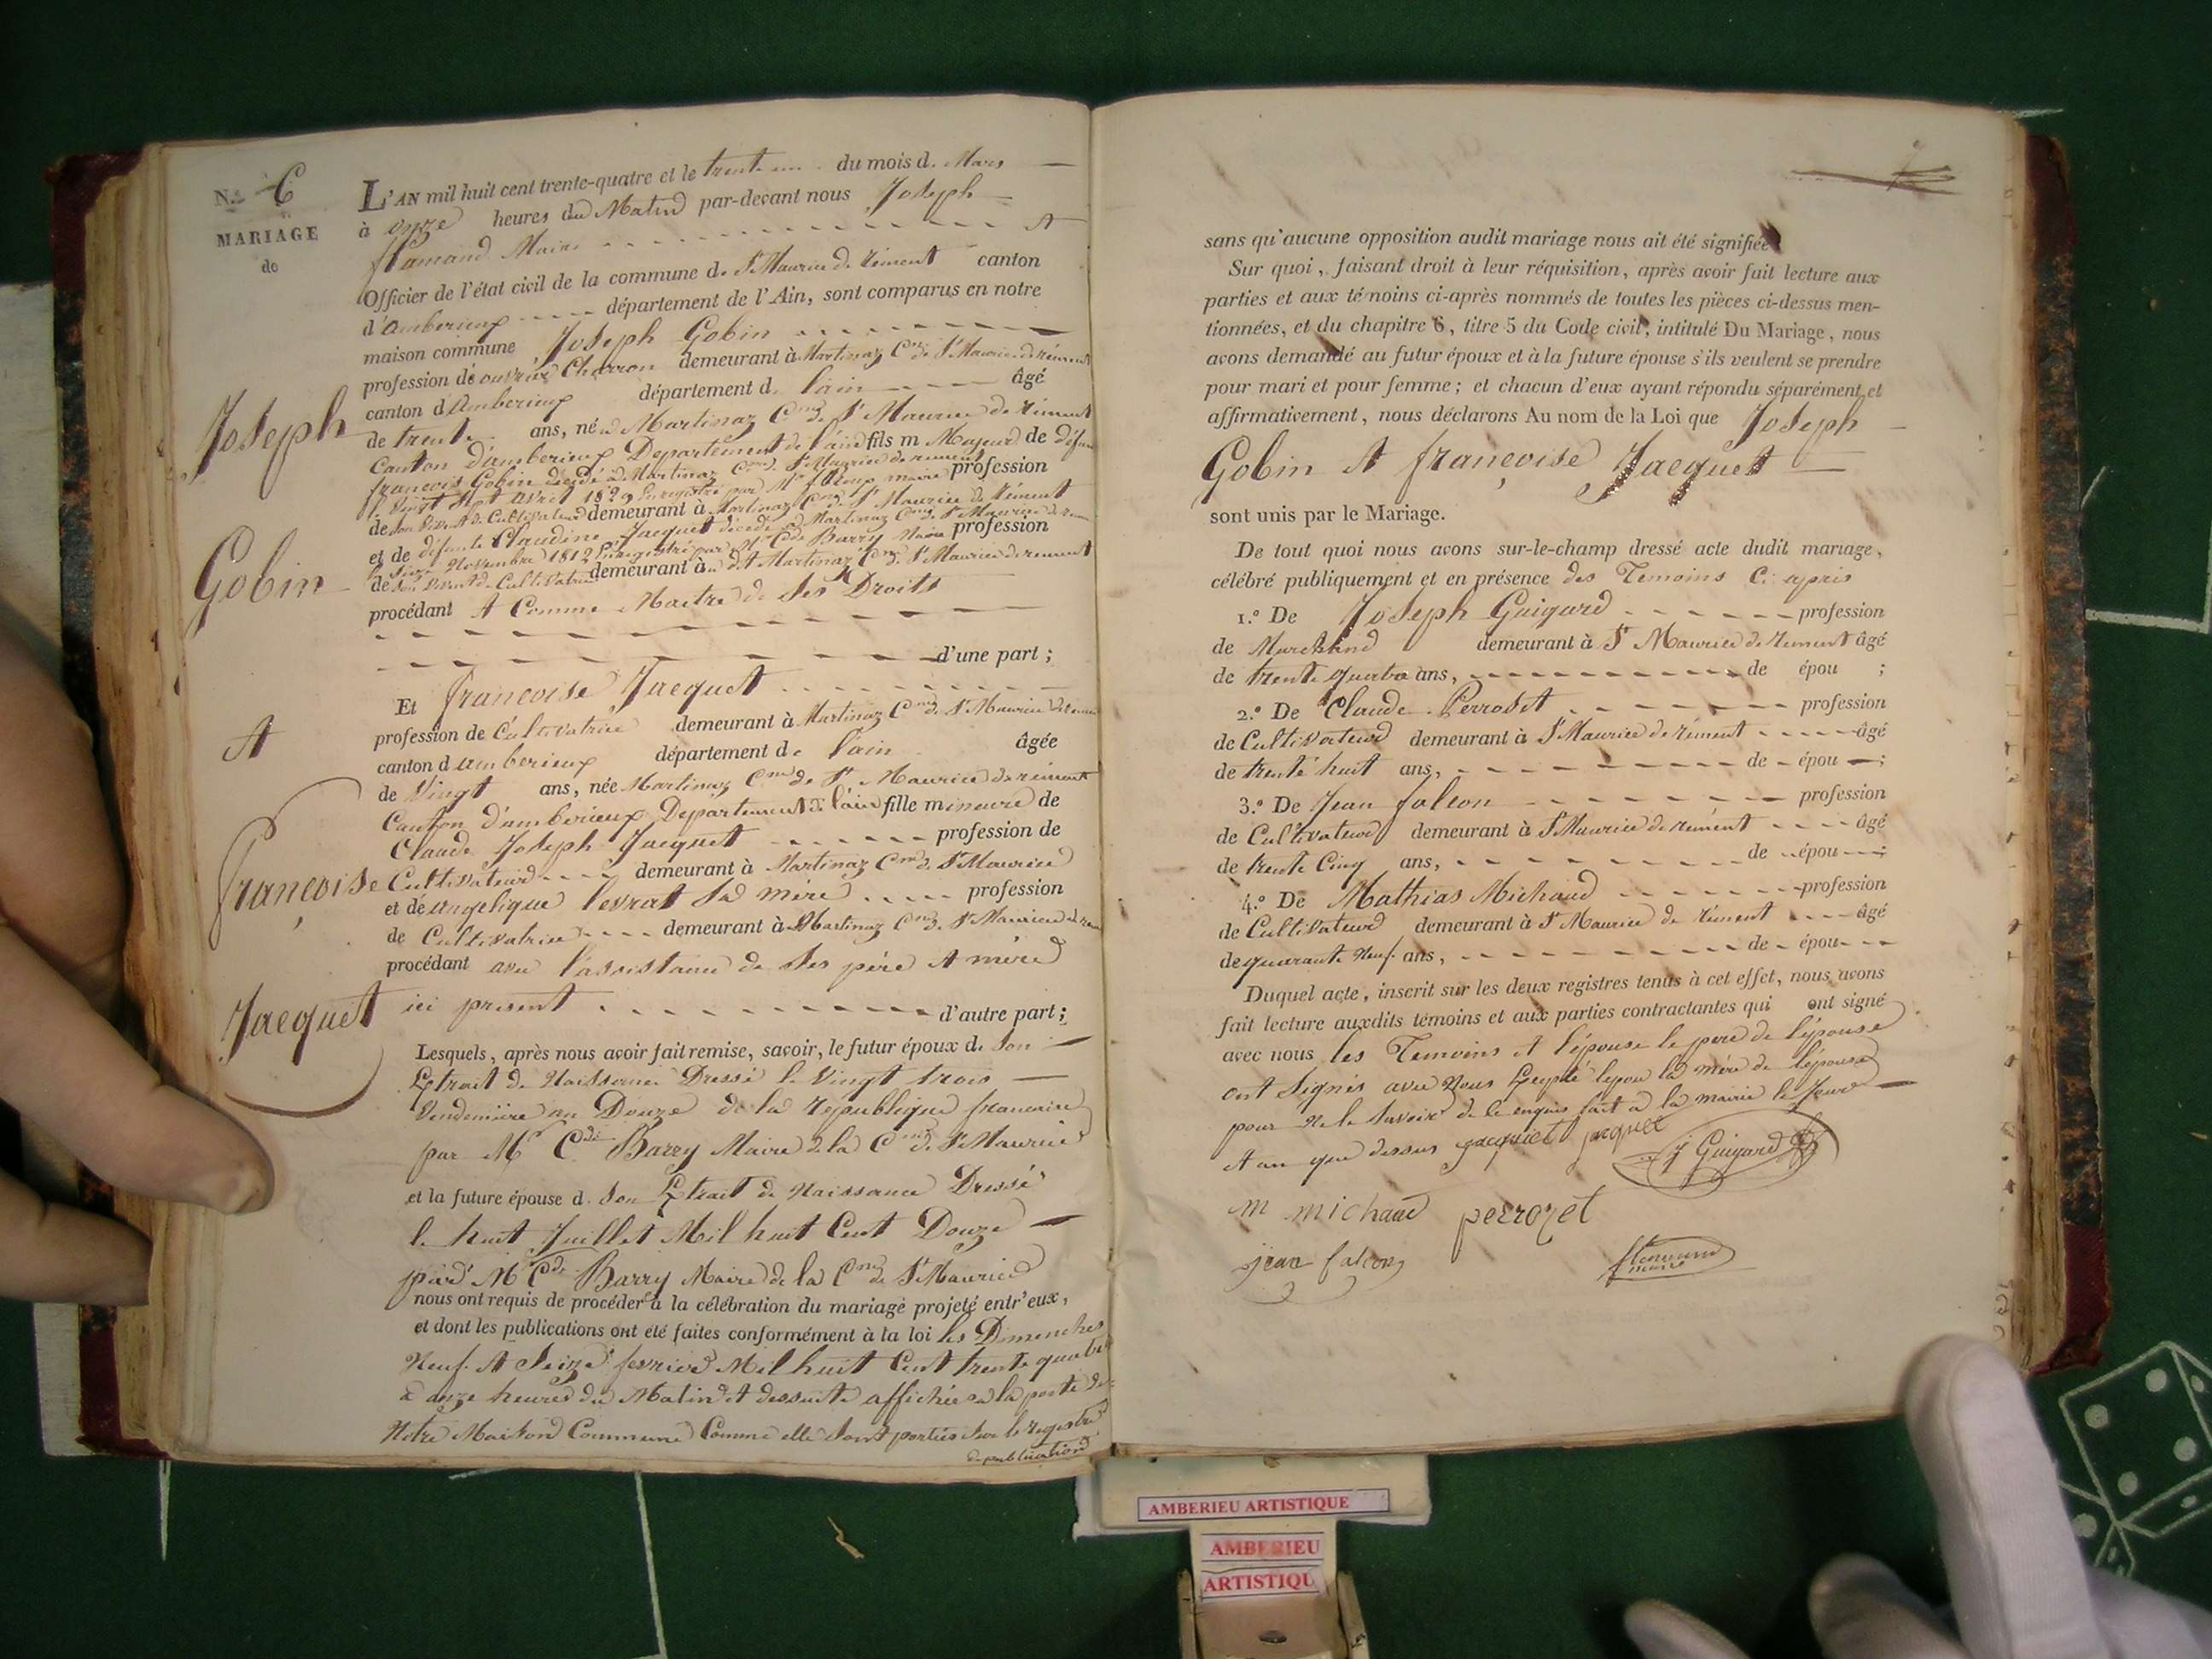 N.º 6
MARIAGE
de
Joseph
Gobin
et
françoise
Jacquet
L'AN mil huit cent trente-quatre et le trente un du mois d. Mars
à onze heures du Matin par-devant nous Joseph
flamand Maire et
Officier de l'état civil de la commune de St Maurice de rément canton
d'amberieux département de l'Ain, sont comparus en notre
maison commune Joseph Gobin
profession de ouvrier Charron demeurant à Martinaz Cne de St Maurice de rément
canton d'Amberieux département d. l'ain âgé
de trente ans, né a Martinaz Cne de St Maurice de rément
Canton d'amberieux Departement de l'ain fils m Majeur de défunt
françois Gobin décédé à Martinaz Cne de St Maurice de rement profession
le Vingt Sept avril 1829 Enregistré par Mr maire
de Son Vivant de Cultivateur demeurant à Martinaz Cne de St Maurice de Rément
et de défunte Claudine Jacquet décédé a Martinaz Cne de St Maurice de profession
le Seize Novembre 1812 Enregistré par Mr Cde Barry Maire
de Son vivant de Cultivatrice demeurant à dit Martinaz Cne de St Maurice de rement
procédant et Comme Maitre de Ses Droits
d'une part ;
Et françoise Jacquet
profession de Cultivatrice demeurant à Martinaz Cne de St Maurice de rement
canton d'amberieux département d. l'ain âgée
de Vingt ans, née Martinaz Cne de St Maurice de rément
Canton d'amberieux Departement de l'ain fille mineure de
Claude Joseph Jacquet profession de
Cultivateur demeurant à Martinaz Cne de St Maurice
et de angelique levrat Sa mère profession
de Cultivatrice demeurant à Martinaz Cne de St Maurice de
procédant avec l'assistance de Ses père et mère
ici présent d'autre part ;
Lesquels, après nous avoir fait remise, savoir, le futur époux d. Son
Extrait de Naissance Dressé le Vingt trois
Vendemiere an Douze de la republique française
par Mr Cde Barry Maire de la Cne de St Maurice
et la future épouse d. Son Extrait de Naissance Dressé
le huit Juillet Mil huit Cent Douze
par Mr Cde Barry Maire de la Cne de St Maurice
nous ont requis de procéder à la célébration du mariage projeté entr'eux,
et dont les publications ont été faites conformément à la loi les Dimenches
Neuf et Seize fevrier Mil huit Cent trente quatre
à onze heures du Matin et dessuite affichée a la porte de
Notre Maison Commune Comme elle Sont portées Sur le registre
de publication
sans qu'aucune opposition audit mariage nous ait été signifiée
Sur quoi, faisant droit à leur réquisition, après avoir fait lecture aux
parties et aux témoins ci-après nommés de toutes les pièces ci-dessus men-
tionnées, et du chapitre 6, titre 5 du Code civil, intitulé Du Mariage, nous
avons demandé au futur époux et à la future épouse s'ils veulent se prendre
pour mari et pour femme ; et chacun d'eux ayant répondu séparément et
affirmativement, nous déclarons Au nom de la Loi que Joseph
Gobin et françoise Jacquet
sont unis par le Mariage.
De tout quoi nous avons sur-le-champ dressé acte dudit mariage,
célébré publiquement et en présence des Temoins Ci apris
1.º De Joseph Guigard profession
de Marchand demeurant à St Maurice de rement âgé
de trente quatre ans, de épou ;
2.º De Claude Perroset profession
de Cultivateur demeurant à St Maurice de rément âgé
de trente huit ans, de épou ;
3.º De Jean falcon profession
de Cultivateur demeurant à St Maurice de rément âgé
de trente Cinq ans, de épou ;
4.º De Mathias Michaud profession
de Cultivateur demeurant à St Maurice de rément âgé
de quarante Neuf ans, de épou
Duquel acte, inscrit sur les deux registres tenus à cet effet, nous avons
fait lecture auxdits témoins et aux parties contractantes qui ont signé
avec nous les Temoins et l'épouse le pere de l'épouse
ont Signés avec Nous Excepté lepou la mère de l'épouse
pour Ne le Savoir de ce enquis fait a la mairie le Jour
et an que dessus jacquet jacquet
j Guigard
m michaud perrozet
jean falcon
flamand
maire
AMBERIEU ARTISTIQUE
AMBERIEU
ARTISTIQU